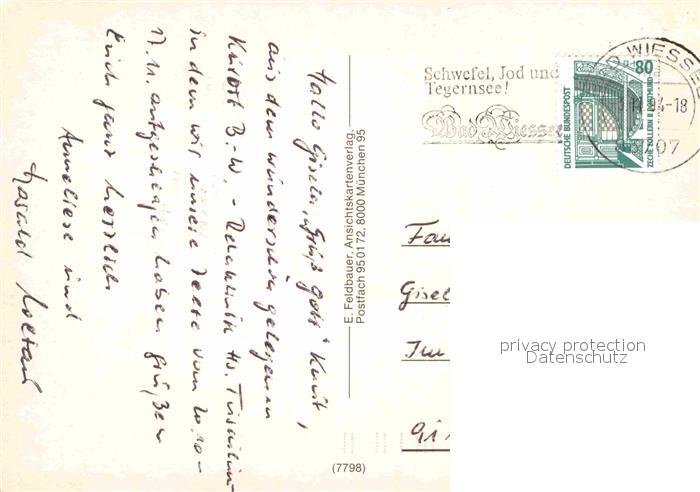 Hallo Gisela, "Grüß Gott" Kurt,
aus dem wunderschön gelegenen
Kurort B.-W. -
in dem wir unsere Zelte vom 20.10 -
17.11. aufgeschlagen haben grüßen
Euch ganz herzlich
Anneliese und
Harald
E. Feldbauer, Ansichtskartenverlag,
Postfach 95 01 72, 8000 München 95
(7798)
Schwefel, Jod und
Tegernsee!
Bad Wiessee
D WIESSEE
-18
707
80
DEUTSCHE BUNDESPOST
ZECHE ZOLLERN II DORTMUND
Fam
Gisel
Im
privacy protection
Datenschutz